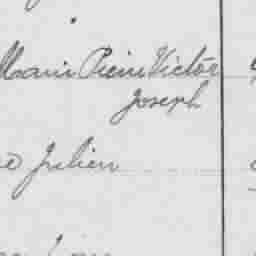 Marie Pierre Victor
Joseph
Julien